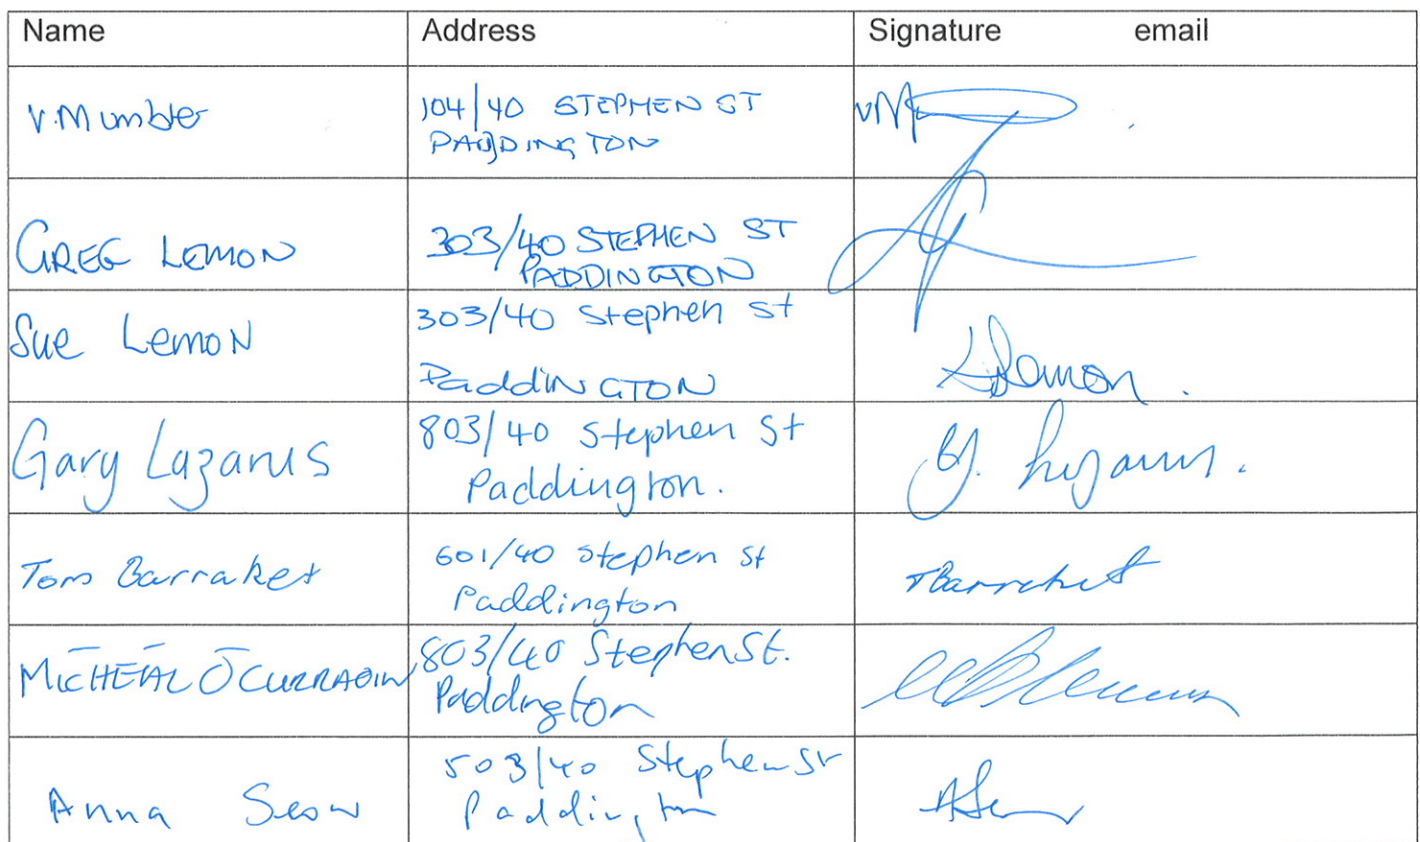 Name Address Signature email
V. Mumbler 104/40 STEPHEN ST
PADDINGTON
GREG LEMON 303/40 STEPHEN ST
PADDINGTON
Sue Lemon 303/40 Stephen st
PaddINGTON
SLemon.
Gary Lazarus 803/40 Stephen St
Paddington.
G. Lazarus.
Tom Barraket 601/40 Stephen St
Paddington
TBarraket
MICHEÁL Ó CURRAOIN 803/40 Stephen St.
Paddington
Anna Seow 503/40 Stephen St
Paddington